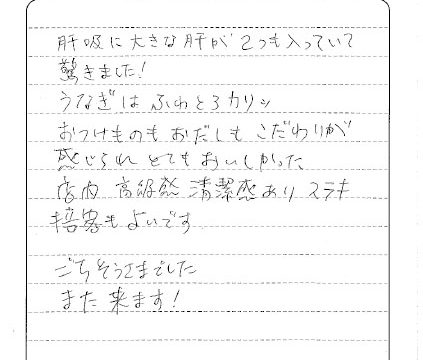 肝吸に大きな肝が2つも入っていて
驚きました!
うなぎは ふわとろカリッ
おつけものも おだしも こだわりが
感じられ とても おいしかった
店内 高級感 清潔感あり ステキ
接客もよいです
ごちそうさまでした
また 来ます!